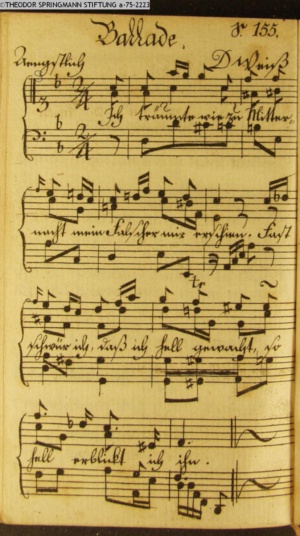 ©THEODOR SPRINGMANN STIFTUNG a-75-2223
Ballade.
S. 155.
Aengstlich
D. Weiß
Ich träumte wie zu Mitter,
nacht mein Falscher mir erschien. Fast
schwür ich, daß ich hell gewacht, so
hell erblickt ich ihn.